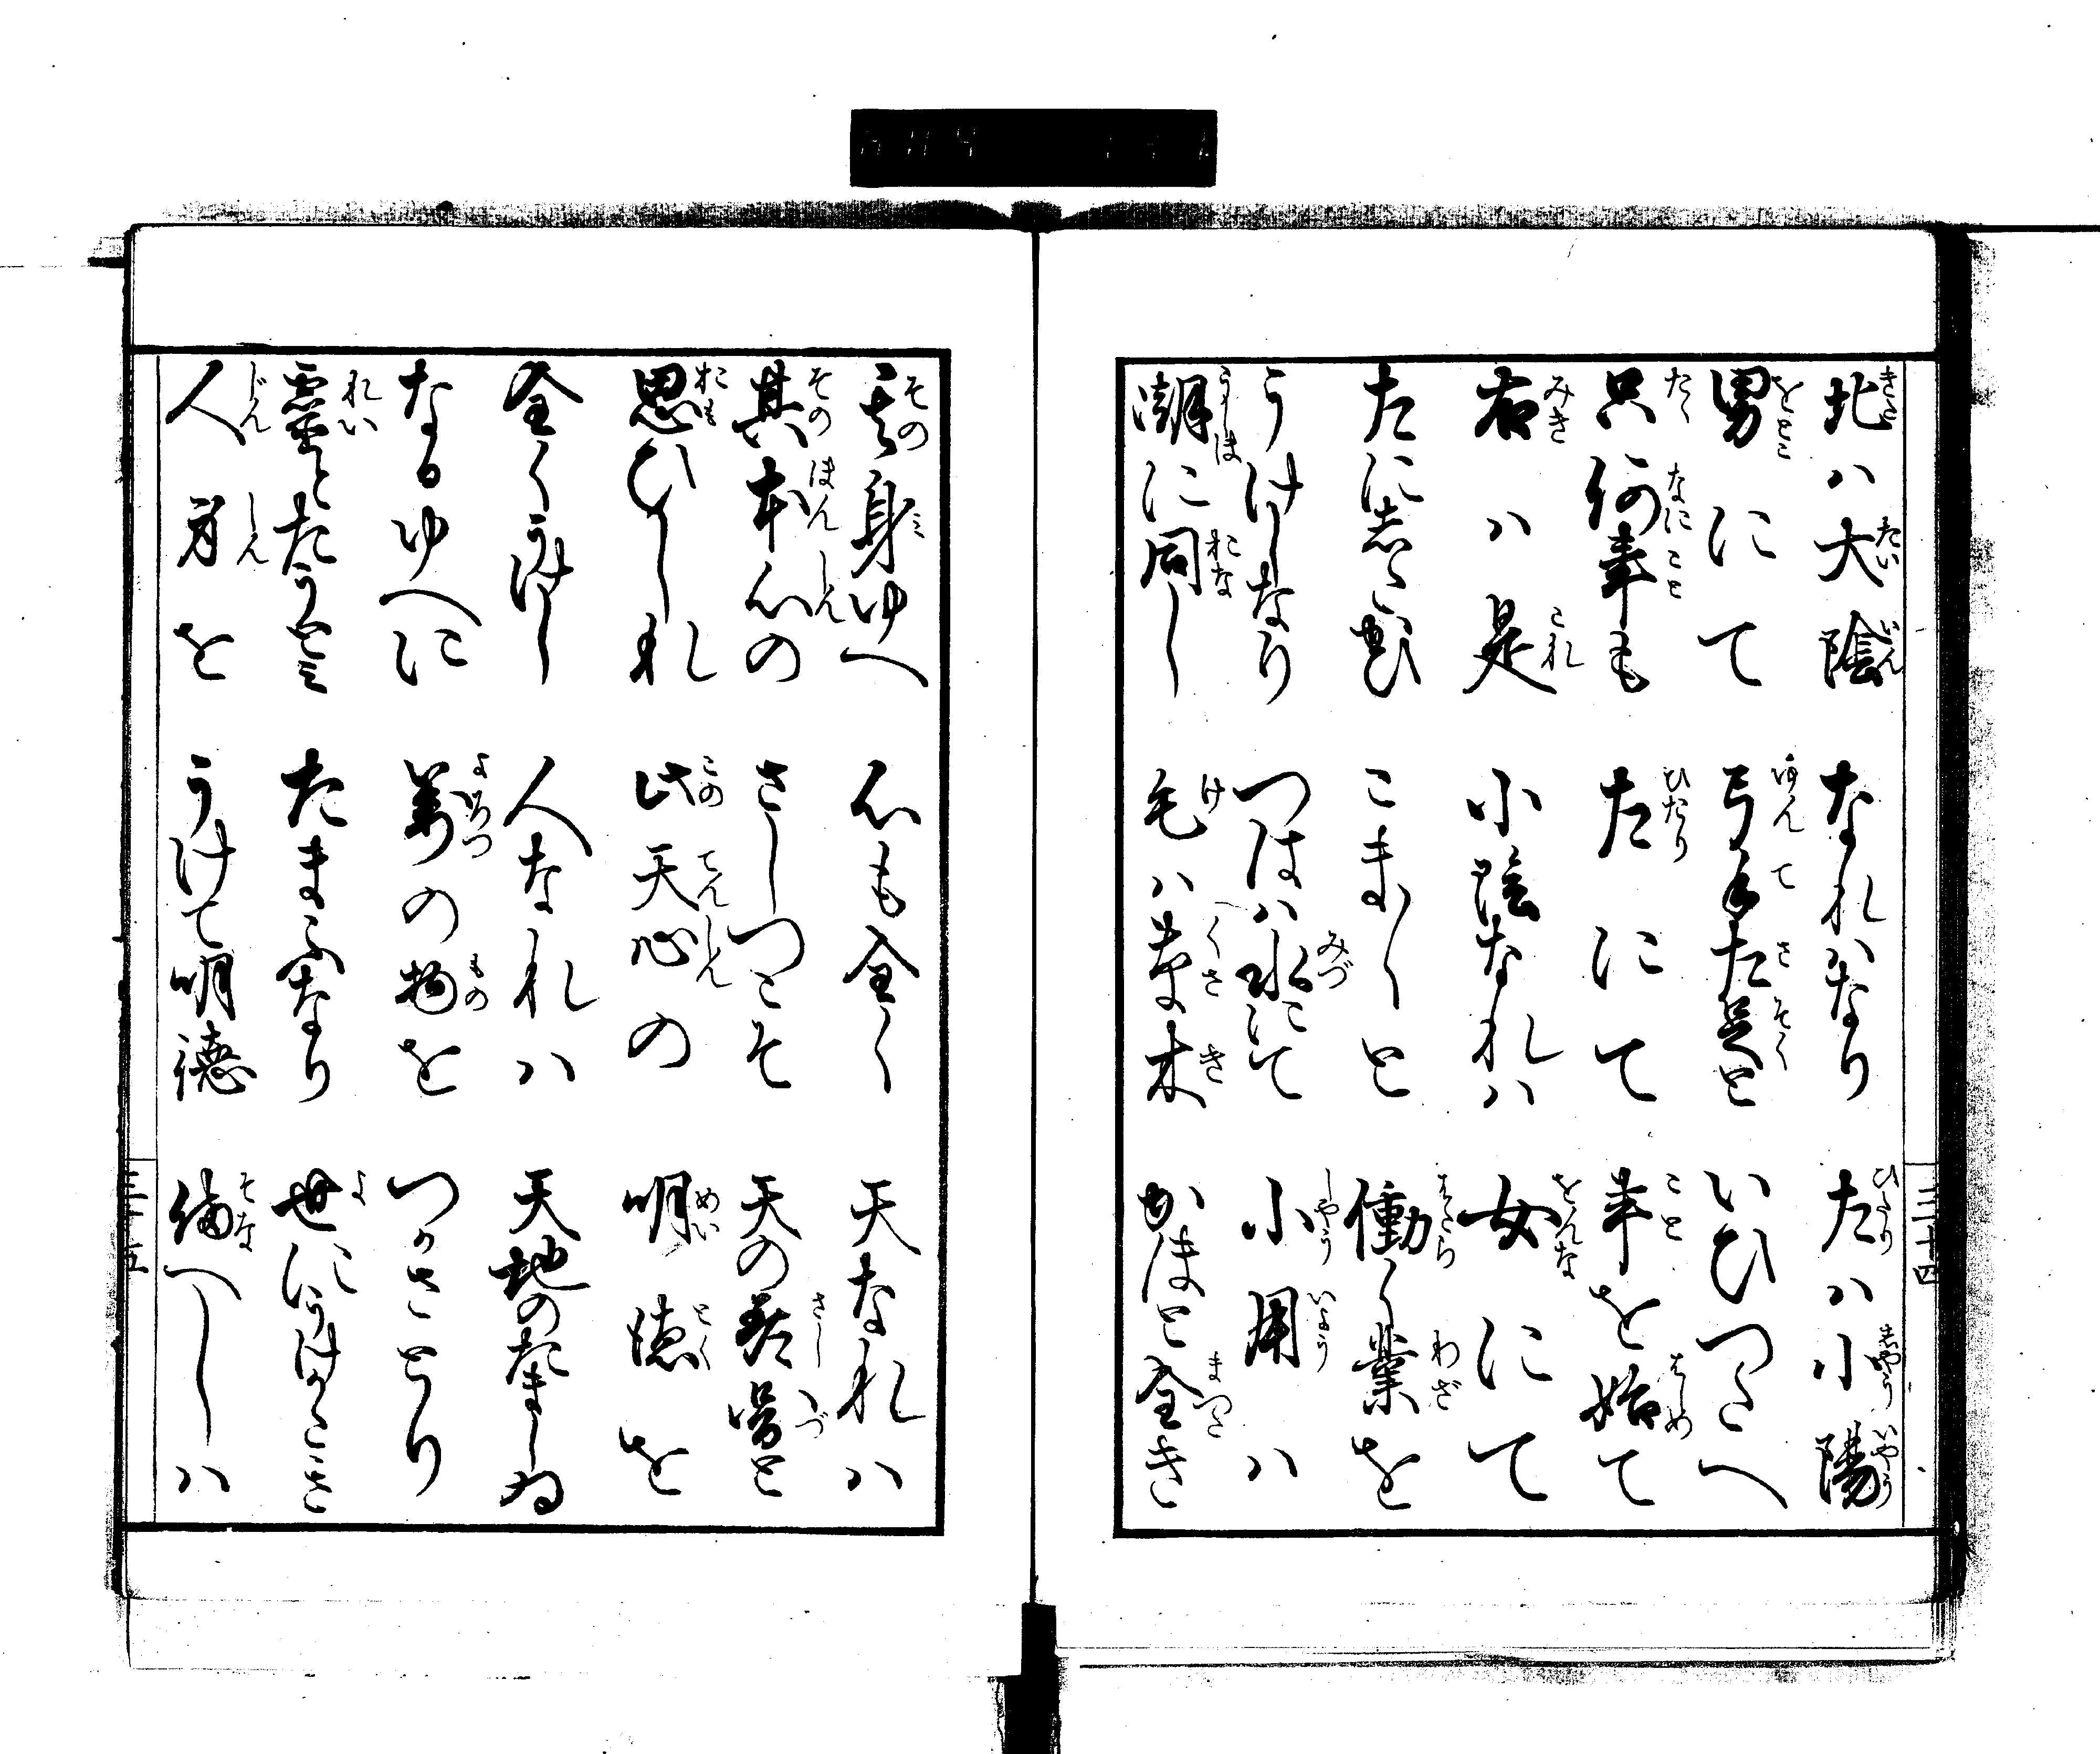 北ハ大陰 なれハなり 左ハ小陽
男にて 弓手左足と いひつたへ
只何事も 左にて 事を始て
右ハ是 小陰なれハ 女にて
左にしたかひ こま〳〵と 働く業を
うけしなり つはハ水にて 小用ハ
潮に同し 毛ハ草木 かほと全き
三十四
其身ゆへ 心も全く 天なれハ
其本心の さしつこそ 天の差図と
思ひしれ 此天心の 明徳を
全くうけし 人なれハ 天地のたましゐ
なるゆへに 萬の物を つかさとり
霊とたうとミ たまふなり 世にうけかたき
人身を うけて明徳 備へしハ
三十五